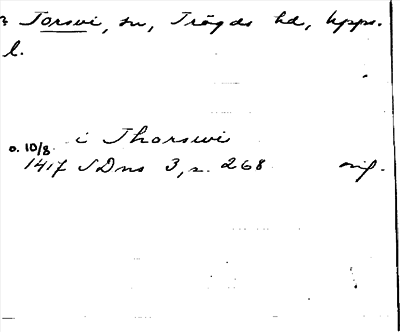 Torsvi, sn, Trögds hd, Upps.
l.
i Thorswi
o. 10/8
1417 SDns 3, s. 268 orig.